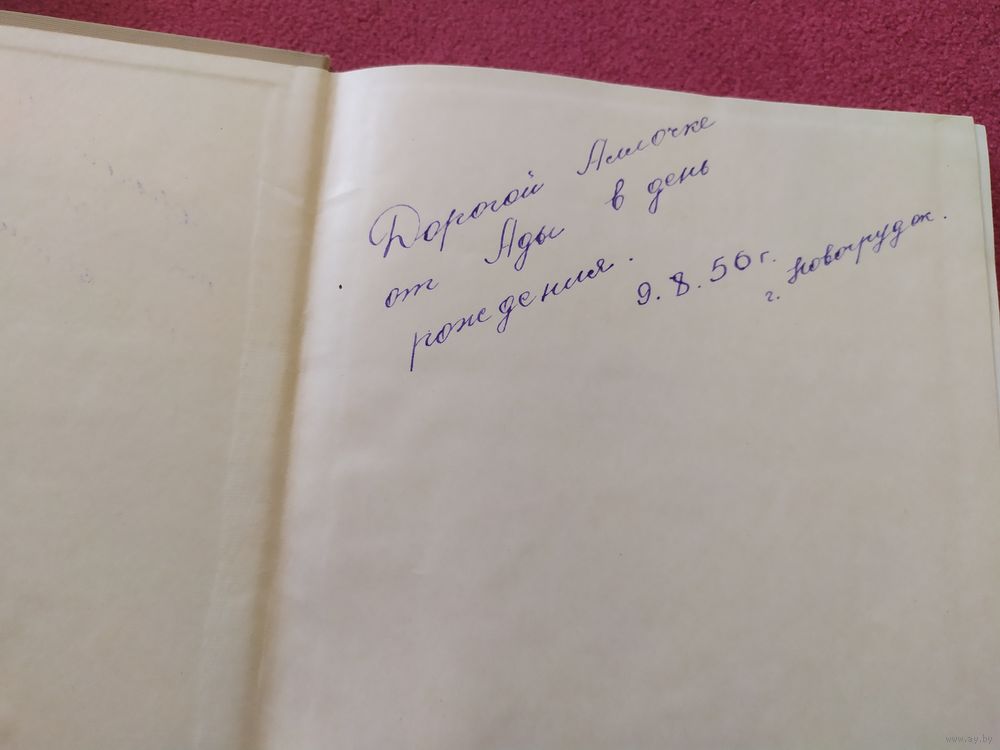 Дорогой Аллочке
от Ады в день
рождения.
9.8.56 г.
г. Новогрудок.
www.ay.by